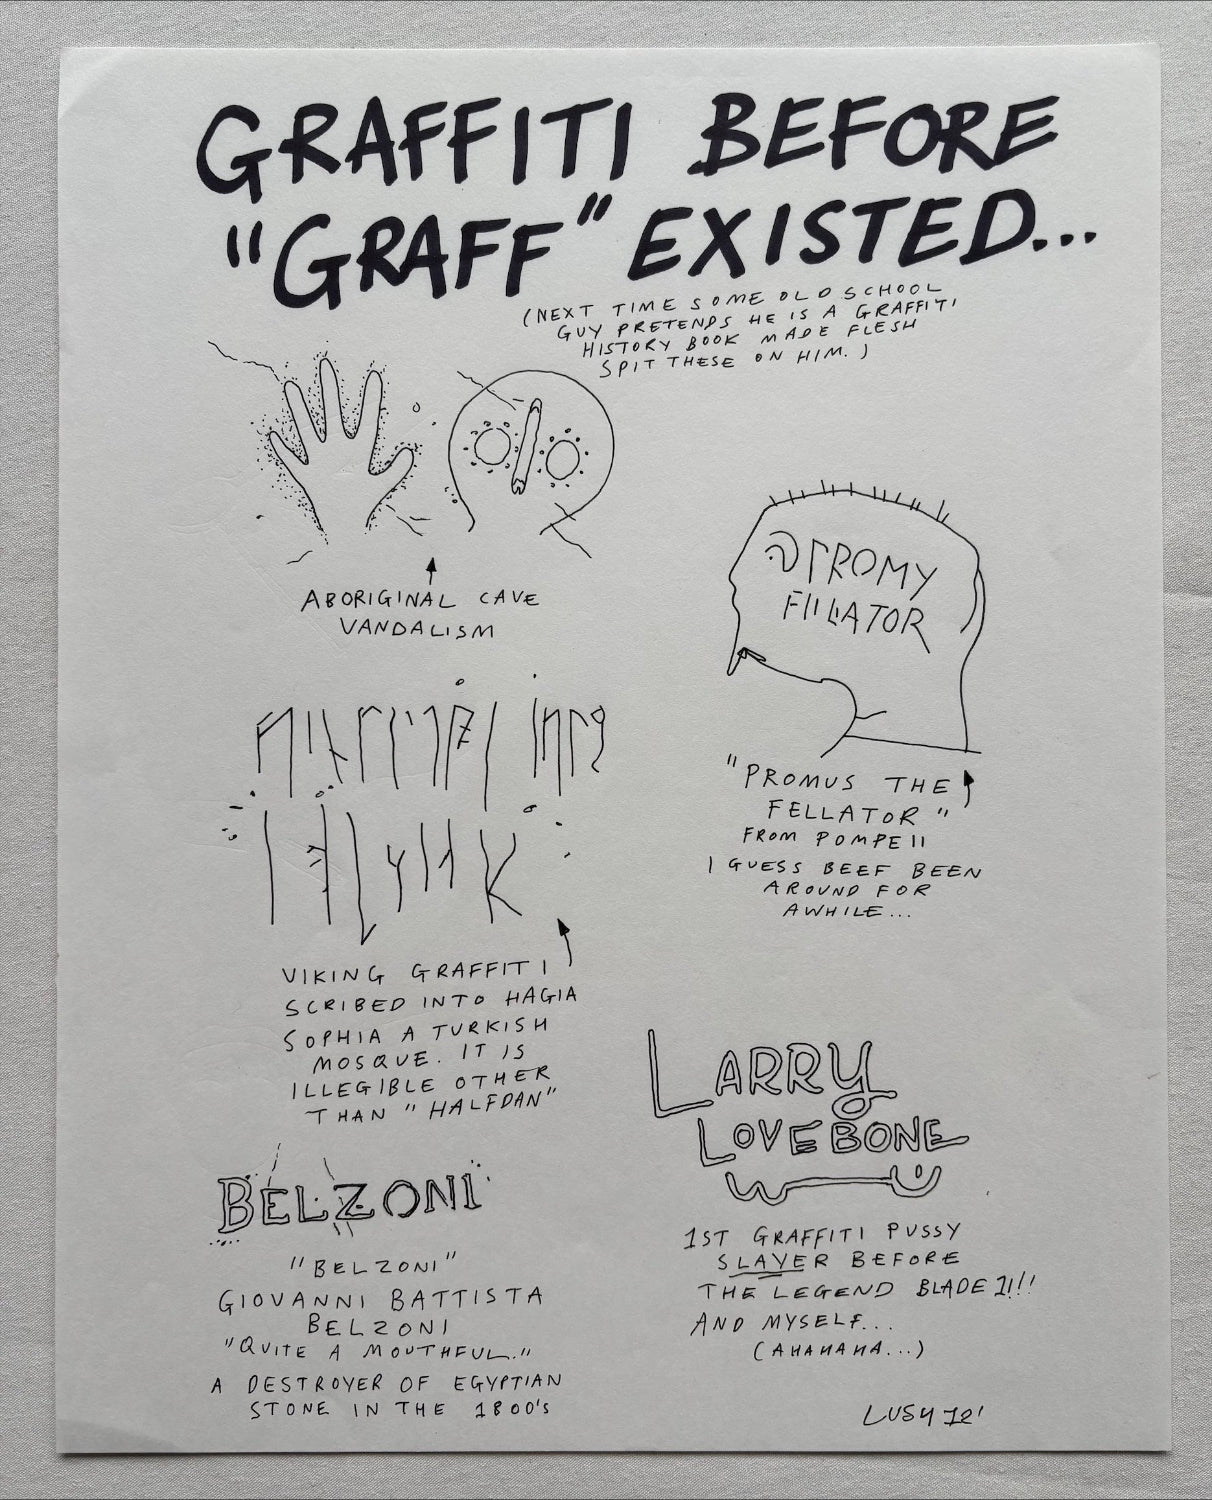 GRAFFITI BEFORE
"GRAFF" EXISTED...
(NEXT TIME SOME OLD SCHOOL
GUY PRETENDS HE IS A GRAFFITI
HISTORY BOOK MADE FLESH
SPIT THESE ON HIM.)
ABORIGINAL CAVE
VANDALISM
PROMY
FILLATOR
"PROMUS THE
FELLATOR"
FROM POMPEII
I GUESS BEEF BEEN
AROUND FOR
AWHILE...
VIKING GRAFFITI
SCRIBED INTO HAGIA
SOPHIA A TURKISH
MOSQUE. IT IS
ILLEGIBLE OTHER
THAN "HALFDAN"
BELZONI
"BELZONI"
GIOVANNI BATTISTA
BELZONI
"QUITE A MOUTHFUL."
A DESTROYER OF EGYPTIAN
STONE IN THE 1800's
LARRY
LOVEBONE
1ST GRAFFITI PUSSY
SLAYER BEFORE
THE LEGEND BLADE 1!!!
AND MYSELF...
(AHAHAHA...)
LUSY 12'